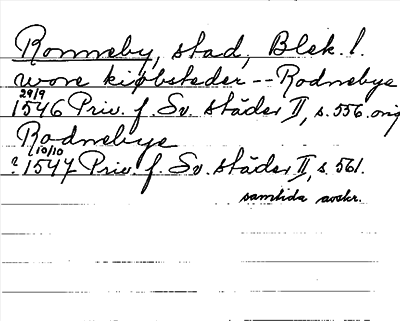 Ronneby, stad, Blek. l.
wore kiøbsteder -- Rodnebye
29/9
1546 Priv. f. Sv. städer II, s. 556. orig
Rodnebye
10/10
? 1547 Priv. f. Sv. städer II, s. 561.
samtida avskr.